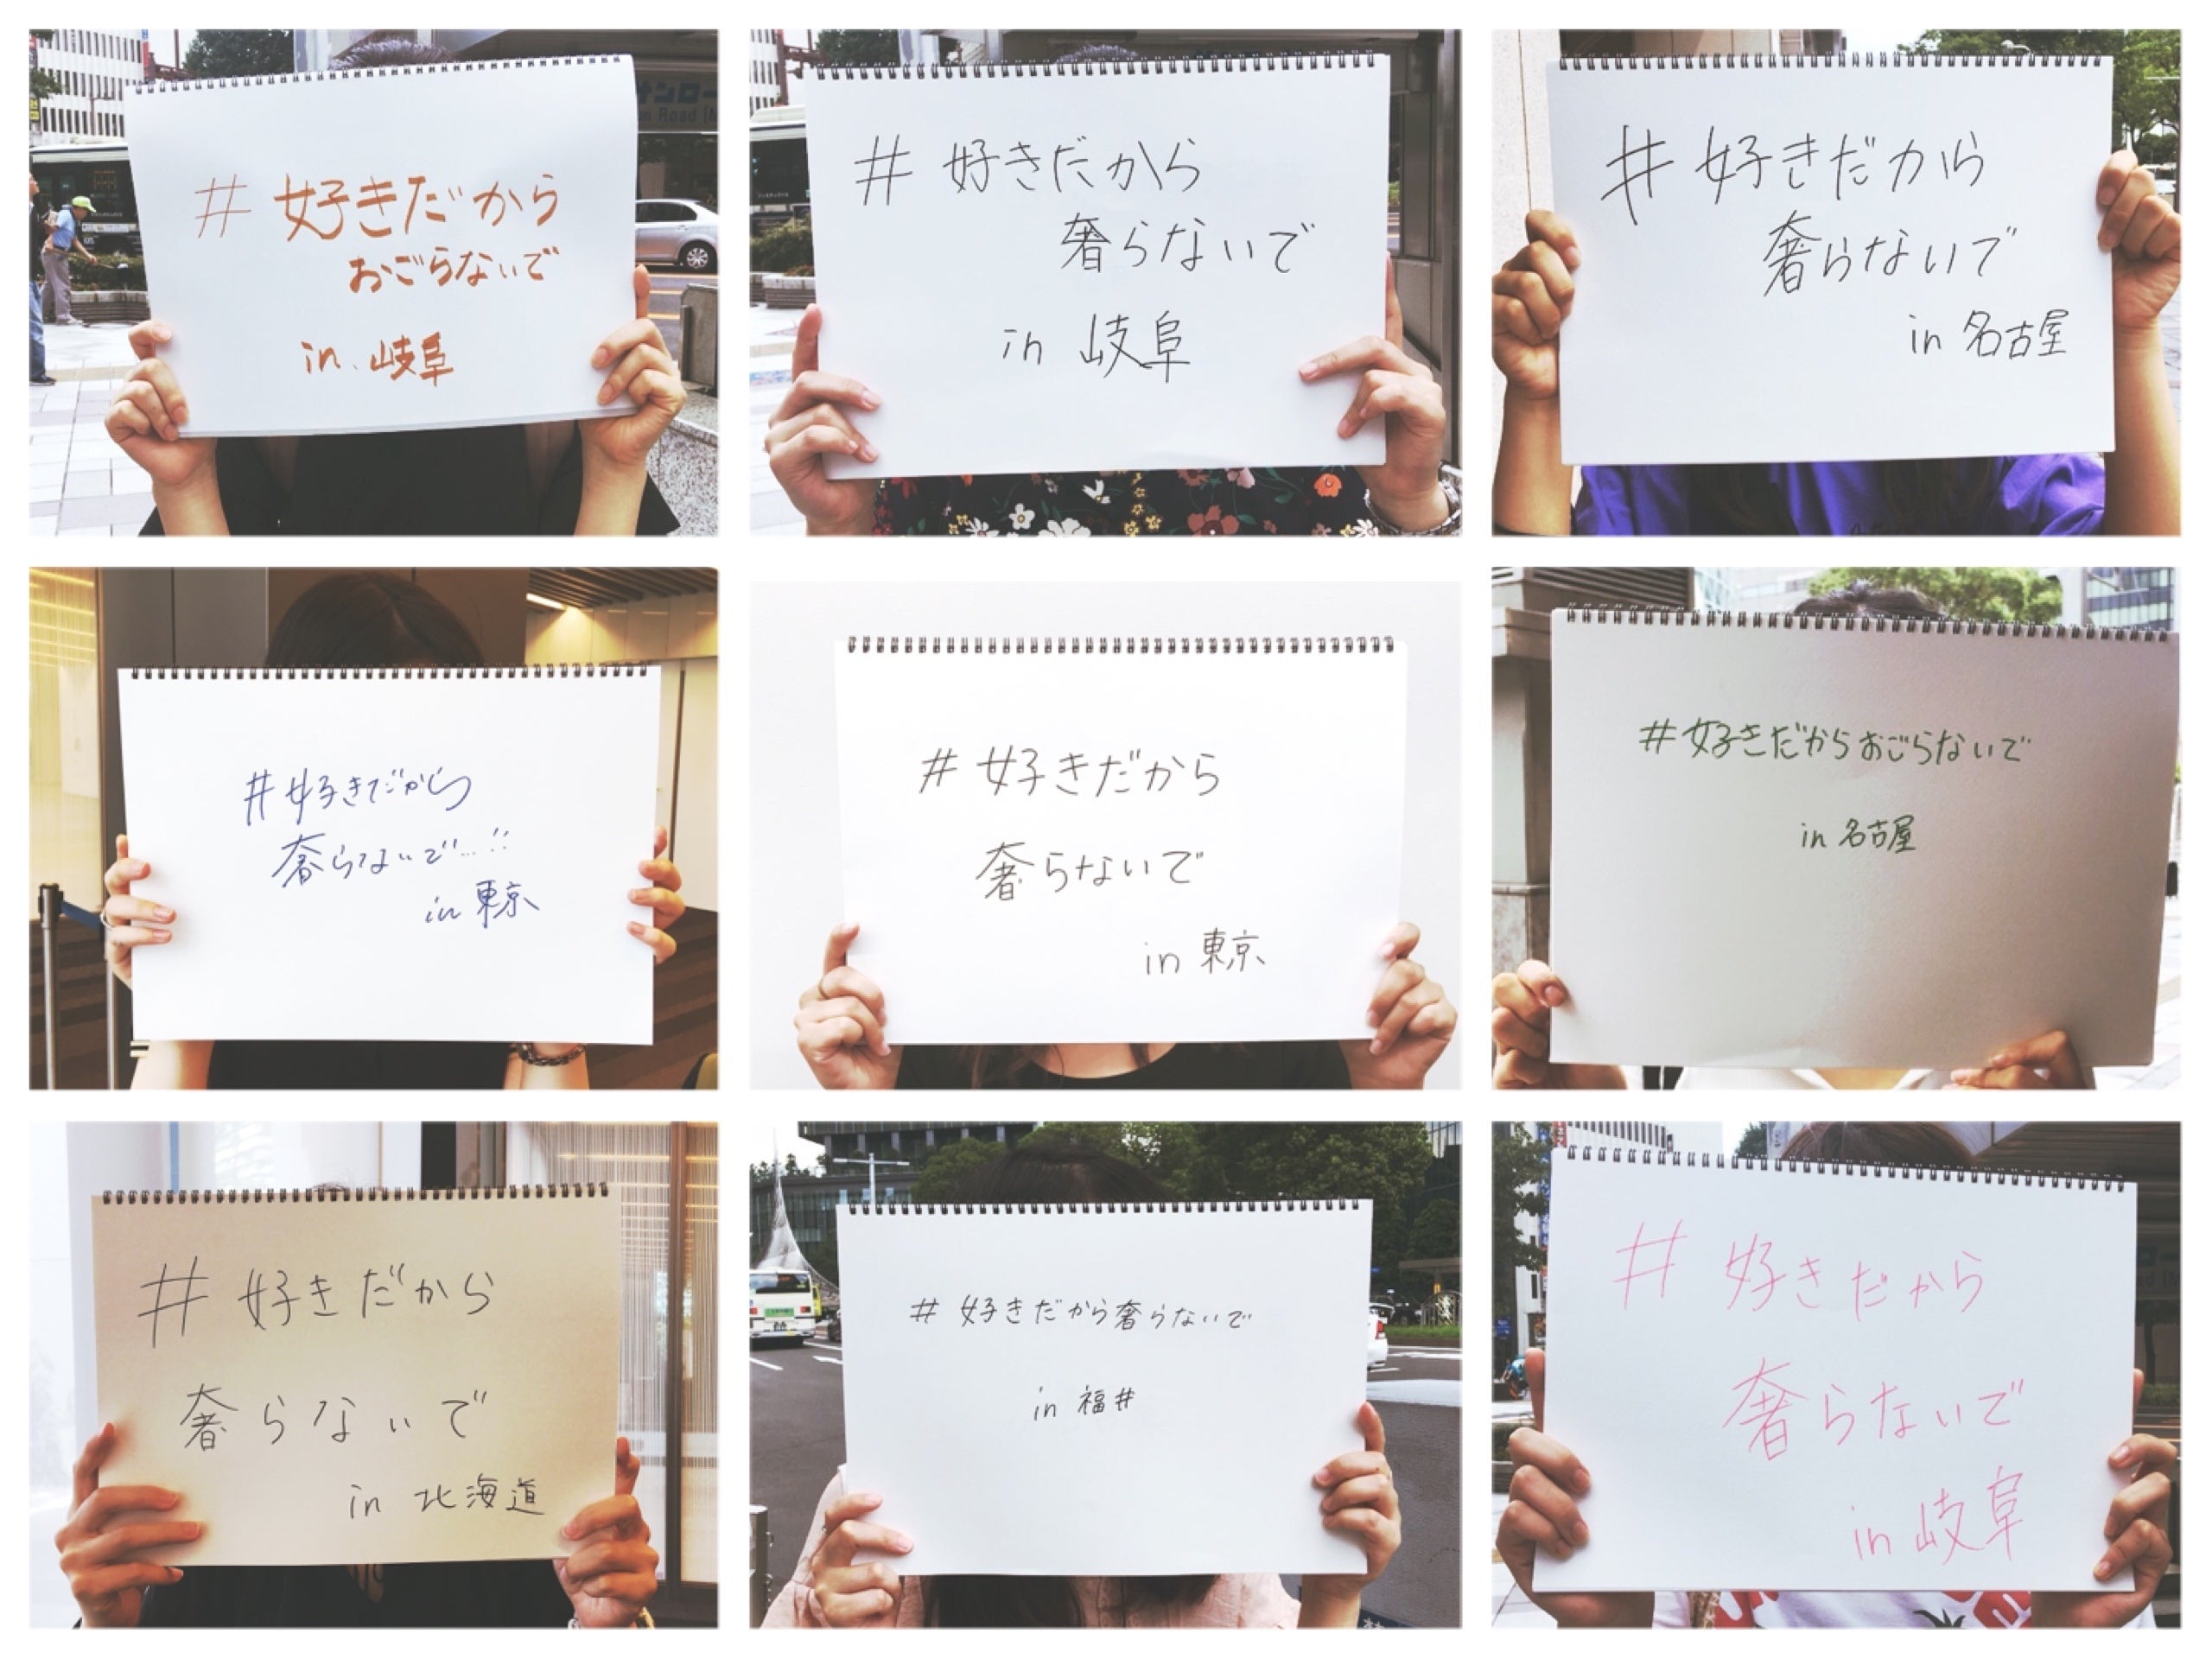 # 好きだから
おごらないで
in 岐阜
# 好きだから
奢らないで
in 岐阜
# 好きだから
奢らないで
in 名古屋
# 好きだから
奢らないで…!!
in 東京
# 好きだから
奢らないで
in 東京
# 好きだからおごらないで
in 名古屋
# 好きだから
奢らないで
in 北海道
# 好きだから奢らないで
in 福井
# 好きだから
奢らないで
in 岐阜